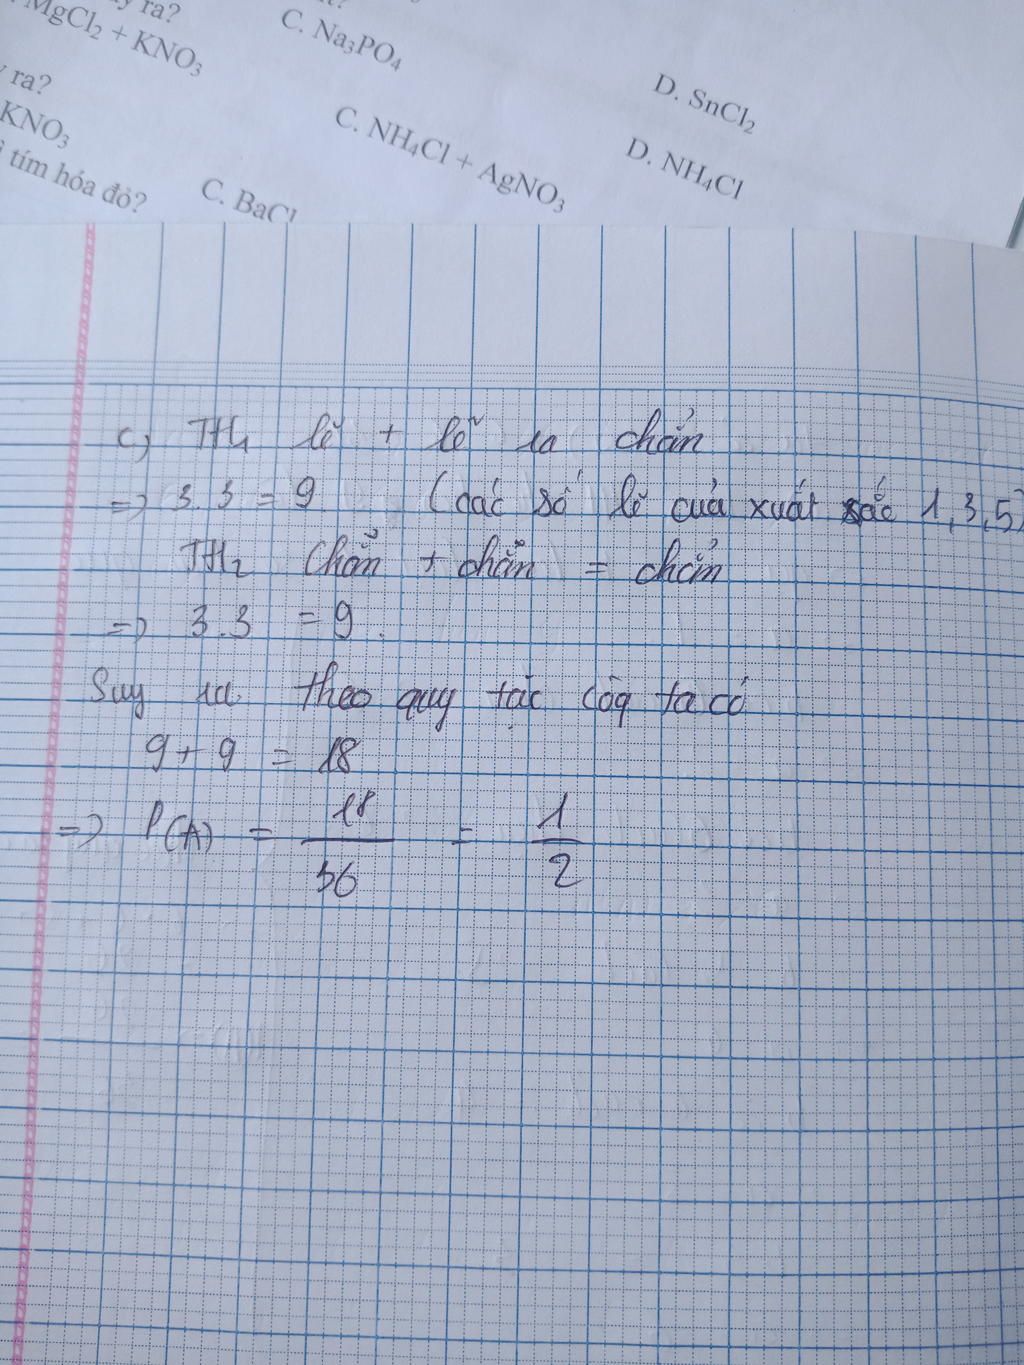 y ra?
MgCl₂ + KNO₃
C. Na₃PO₄
D. SnCl₂
y ra?
KNO₃
C. NH₄Cl + AgNO₃
D. NH₄Cl
tím hóa đỏ?
C. BaCl
c) TH₁ lẽ + lẽ ra chẳn
=> 3.3 = 9 (các số lẽ của xuất sắc 1,3,5)
TH₂ Chẵn + chẵn = chẳn
=> 3.3 = 9.
Suy ra theo quy tắc cộg ta có
9 + 9 = 18
=> P(A) = 18/36 = 1/2